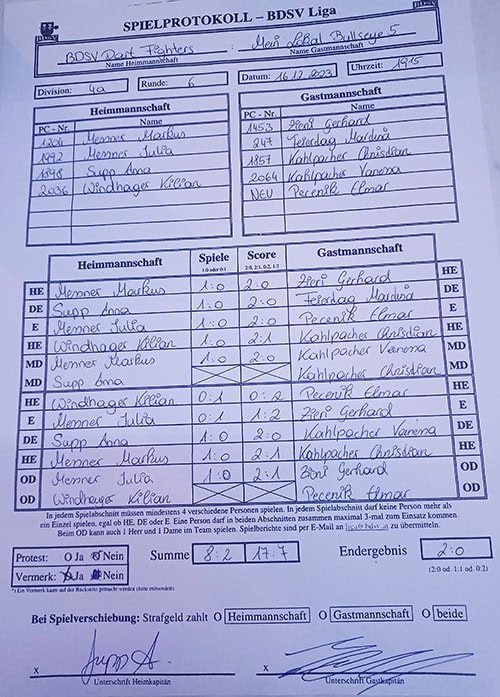 SPIELPROTOKOLL – BDSV Liga
BDSV Dart Fighters : Mein Lokal Bullseye 5
Name Heimmannschaft Name Gastmannschaft
Division: 4a Runde: 6 Datum: 16.12.2023 Uhrzeit: 19 15
Heimmannschaft Gastmannschaft
PC - Nr. Name PC - Nr. Name
1204 Menner Markus 1453 Zieri Gerhard
1492 Menner Julia 247 Feierdag Mardina
1898 Supp Anna 1857 Kahlpacher Chrisdian
2036 Windhager Kilian 2064 Kahlpacher Vanena
NEU Pecenik Elmar
Heimmannschaft Spiele Score Gastmannschaft
1:0 oder 0:1 2:0, 2:1, 0:2, 1:2
HE Menner Markus 1:0 2:0 Zieri Gerhard HE
DE Supp Anna 1:0 2:0 Feierdag Mardina DE
E Menner Julia 1:0 2:0 Pecenik Elmar E
HE Windhager Kilian 1:0 2:1 Kahlpacher Chrisdian HE
MD Menner Markus 1:0 2:0 Kahlpacher Vanena MD
MD Supp Anna Kahlpacher Chrisdian MD
HE Windhager Kilian 0:1 0:2 Pecenik Elmar HE
E Menner Julia 0:1 1:2 Zieri Gerhard E
DE Supp Anna 1:0 2:0 Kahlpacher Vanena DE
HE Menner Markus 1:0 2:1 Kahlpacher Chrisdian HE
OD Menner Julia 1:0 2:1 Zieri Gerhard OD
OD Windhager Kilian Pecenik Elmar OD
In jedem Spielabschnitt müssen mindestens 4 verschiedene Personen spielen. In jedem Spielabschnitt darf keine Person mehr als
ein Einzel spielen, egal ob HE, DE oder E. Eine Person darf in beiden Abschnitten zusammen maximal 3-mal zum Einsatz kommen.
Beim OD kann auch 1 Herr und 1 Dame im Team spielen. Spielberichte sind per E-Mail an zu übermitteln.
Protest: O Ja O Nein Summe 8:2 17:7 Endergebnis 2:0
Vermerk: O Ja Nein (2:0 od. 1:1 od. 0:2)
*) Ein Vermerk kann auf der Rückseite gemacht werden (bitte mitsenden)
Bei Spielverschiebung: Strafgeld zahlt O Heimmannschaft O Gastmannschaft O beide
x Supp A. x
Unterschrift Heimkapitän Unterschrift Gastkapitän